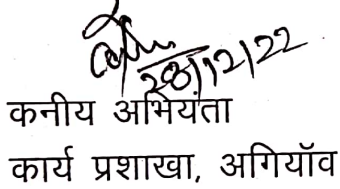 28/12/22
कनीय अभियंता
कार्य प्रशाखा, अगियॉव